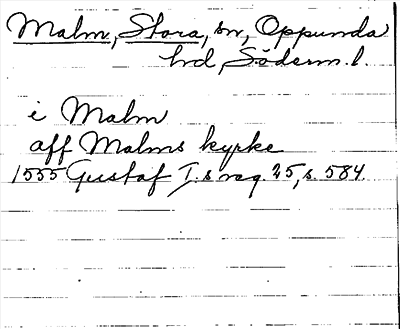 Malm, Stora, sn, Oppunda
hd, Söderm. l.
i Malm
aff Malms kyrke
1555 Gustaf I:s reg 25, s. 584.